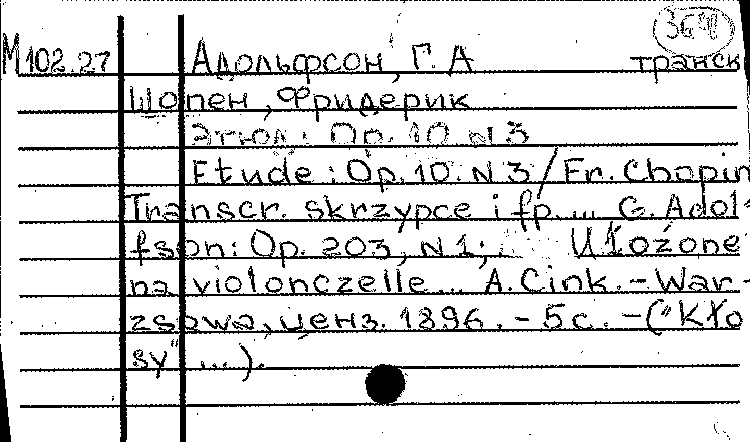 3698
М102.27 Адольфсон, Г. А транск
Шопен, Фридерик
Этюд: Op. 10 N 3
Etude : Op. 10. N 3 / Fr. Chopin
Transcr. skrzypce i fp. ... G. Adol-
fson: Op. 203, N 1; Ułożone
na violonczelle ... A. Cink. - War-
zsawa, ценз. 1896. - 5 с. - ("Kło
sy" ... ).